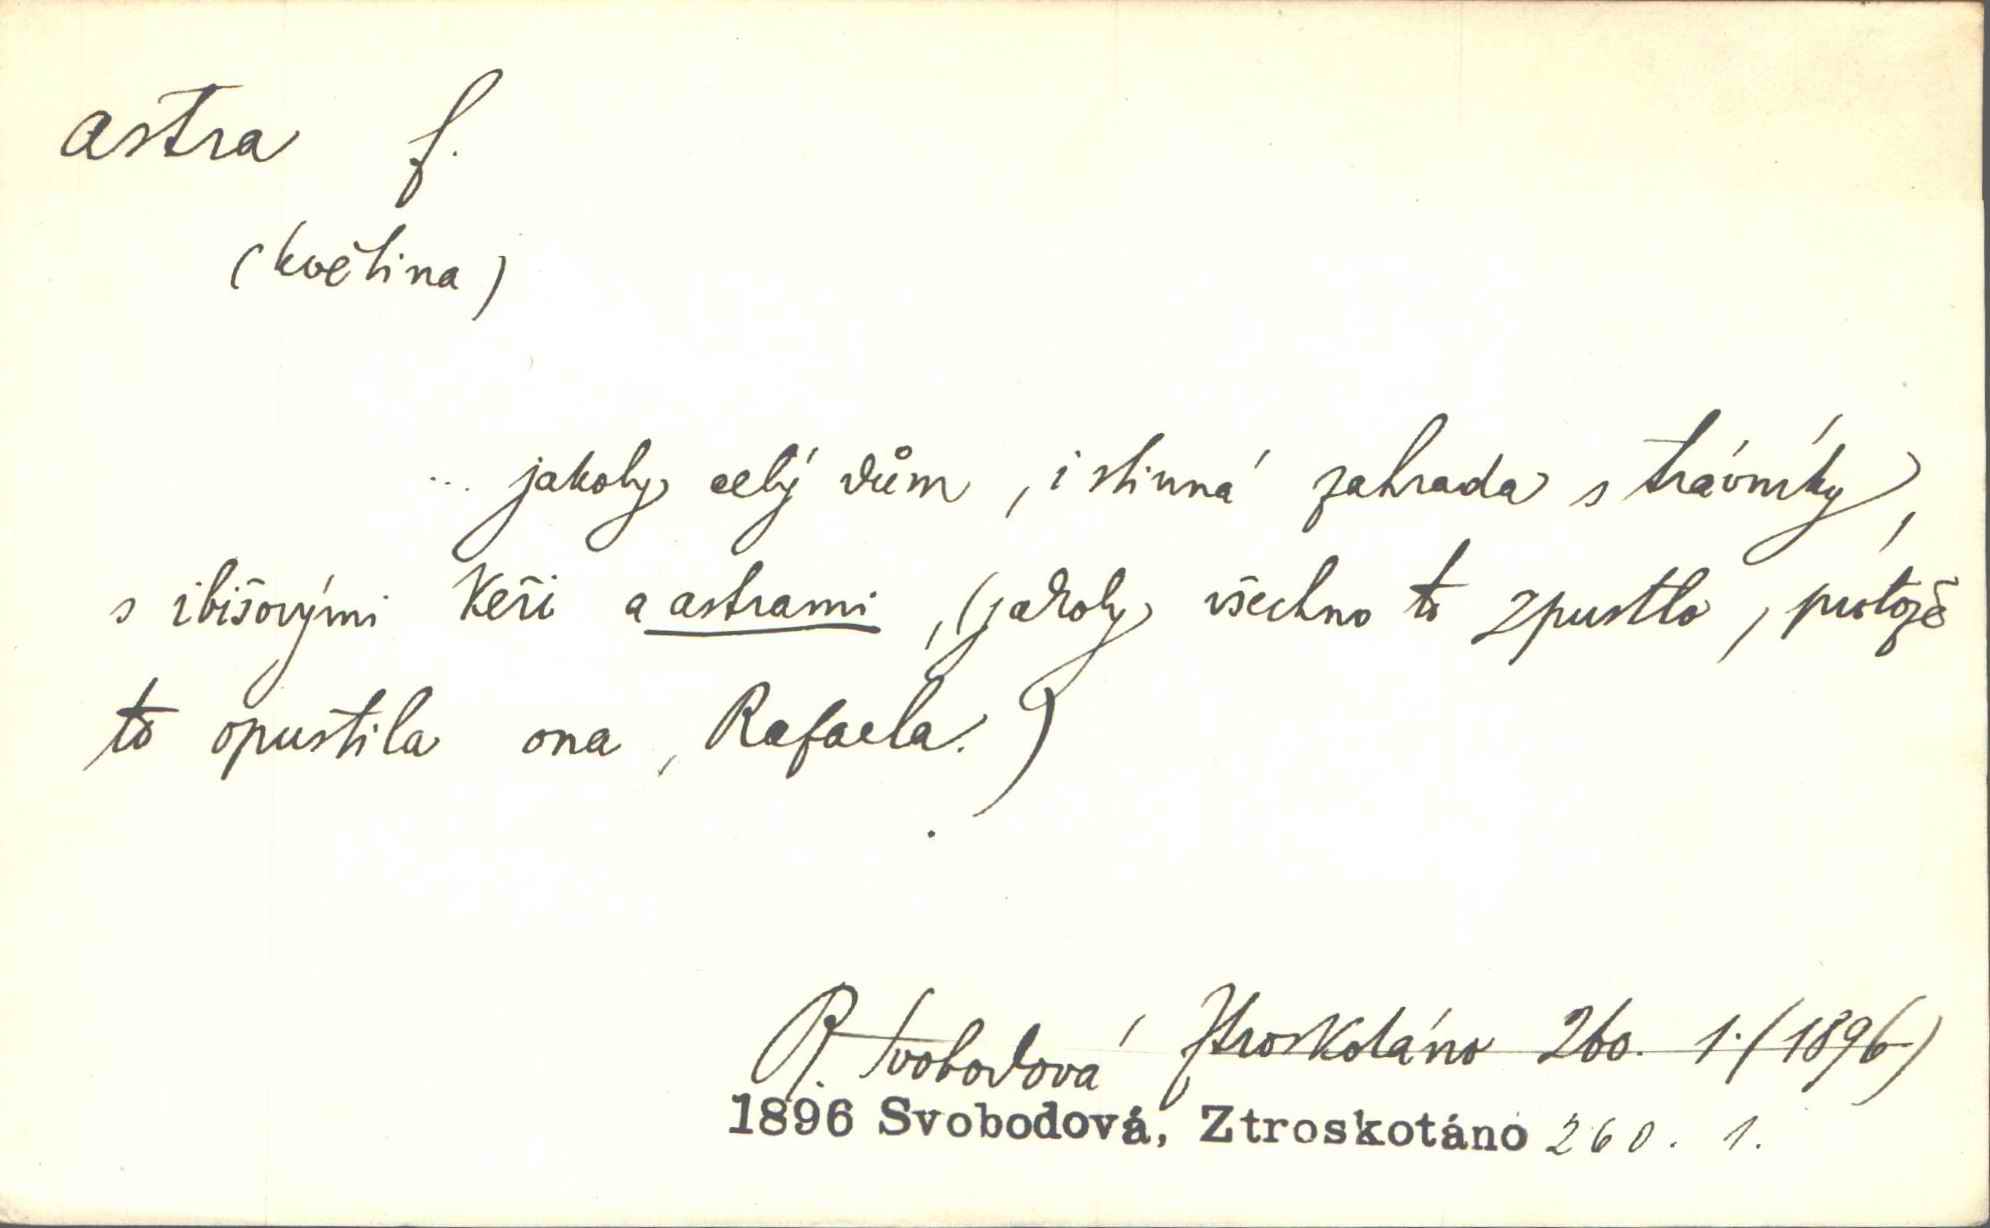 astra f.
(květina)
... jakoby celý dům, i stinná zahrada s trávníky,
s ibišovými keři a astrami, (jakoby všechno to zpustlo, protože
to opustila ona, Rafaela.)
R. Svobodová Ztroskotáno 260. 1. (1896)
1896 Svobodová, Ztroskotáno 260. 1.